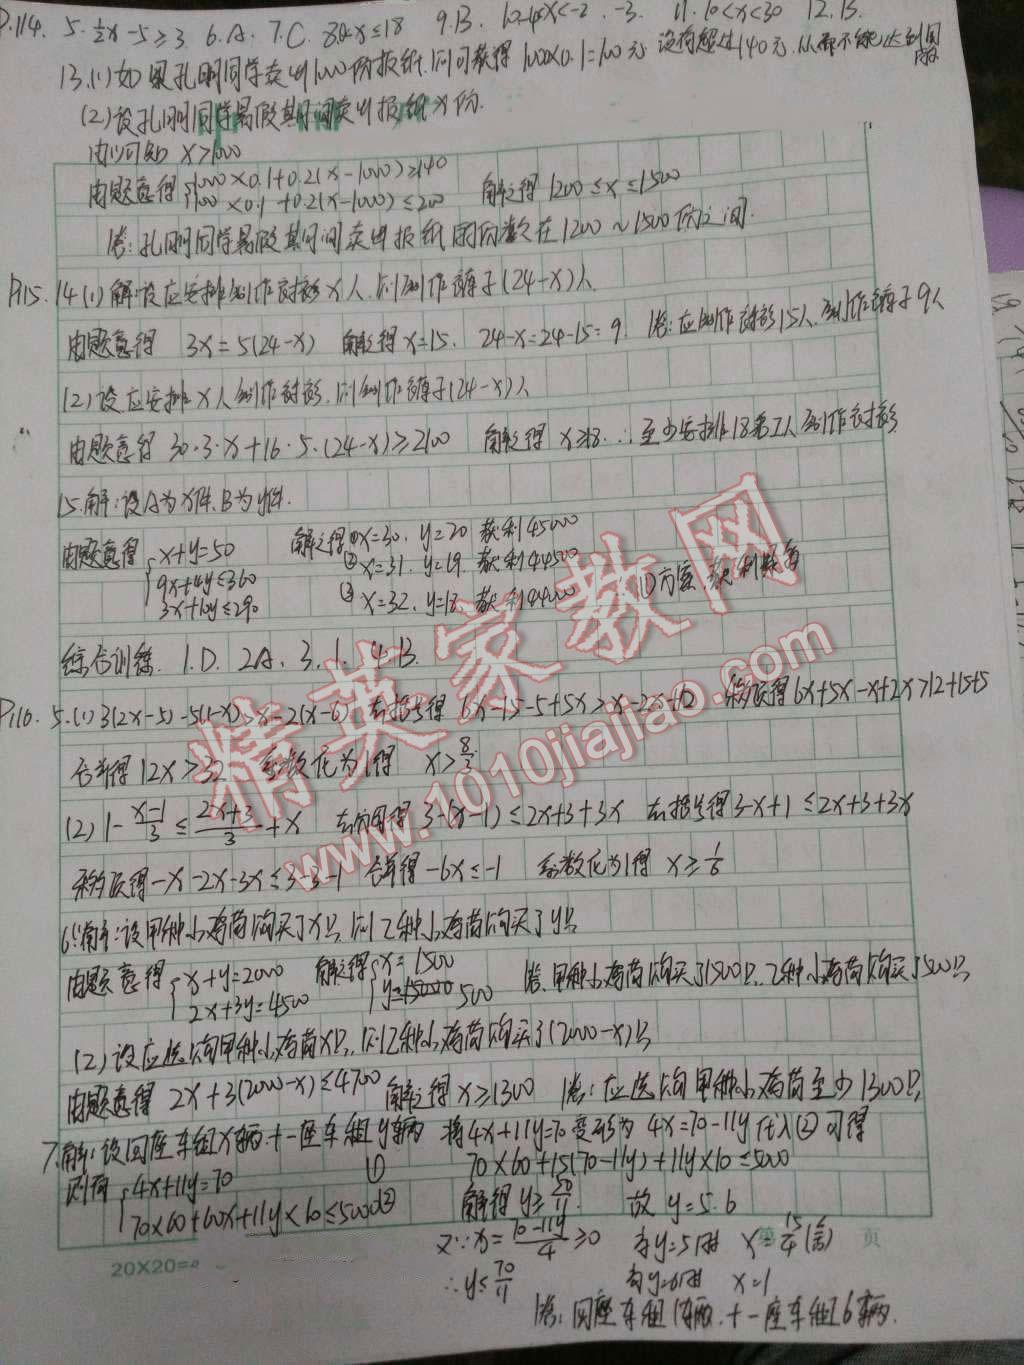 P.114. 5. ½x-5≥3. 6.A. 7.C. 8. x≤18 9.B. 11. 10<x<30 12.B.
13.(1)如果孔明同学卖出1000份报纸,则可获得 1000×0.1=100元 没有超过140元,从而不能达到目的
(2)设孔明同学暑假期间卖出报纸x份.
由(1)可知 x>1000
由题意得 {1000×0.1+0.2(x-1000)≥140
1000×0.1+0.2(x-1000)≤200 解之得 1200≤x≤1500
答:孔明同学暑假期间卖出报纸的份数在1200~1500份之间.
P115. 14.(1)解:设应安排制作衬衫x人,则制作裤子(24-x)人
由题意得 3x=5(24-x) 解之得x=15. 24-x=24-15=9. 答:应制作衬衫15人,制作裤子9人
(2)设应安排x人制作衬衫,则制作裤子(24-x)人
由题意得 30·3·x+16·5·(24-x)≥2100 解之得 x≥18. ∴至少安排18名工人制作衬衫
15.解:设A为x件.B为y件.
由题意得 {x+y=50
9x+4y≤360
3x+10y≤290
解之得 ①x=30, y=20 获利45000
②x=31, y=19. 获利44500
③x=32, y=18. 获利44000 ①方案,获利最多
综合训练. 1.D. 2A. 3.1. 4.B.
P116. 5.(1)3(2x-5)-5(1-x)>x-2(x-6) 去括号得 6x-15-5+5x>x-2x+12 移项得6x+5x-x+2x>12+15+5
合并得12x>32 系数化为1得 x>8/3
(2)1-(x-1)/3≤(2x+3)/3+x 去分母得 3-(x-1)≤2x+3+3x 去括号得3-x+1≤2x+3+3x
移项得-x-2x-3x≤3-3-1 合并得-6x≤-1 系数化为1得 x≥1/6
6.解:设甲种小鸡苗购买了x只,则乙种小鸡苗购买了y只
由题意得 {x+y=2000
2x+3y=4500
解之得 {x=1500
y=500 答:甲种小鸡苗购买了1500只,乙种小鸡苗购买了500只
(2)设应选购甲种小鸡苗x只,则乙种小鸡苗购买了(2000-x)只
由题意得 2x+3(2000-x)≤4700 解之得x≥1300 答:应选购甲种小鸡苗至少1300只
7.解:设四座车租x辆.十一座车租y辆 将4x+11y=70变形为 4x=70-11y代入②可得
则有 {4x+11y=70 ①
70×60+60x+11y×10≤5000②
70×60+15(70-11y)+11y×10≤5000
解得y≥50/11 故 y=5.6
又∵x=(70-11y)/4≥0 当y=5时 x=15/4(舍)
∴y≤70/11 当y=6时 x=1
答:四座车租1辆.十一座车租6辆.
20×20=
第 页
精英家教网
www.1010jiajiao.com